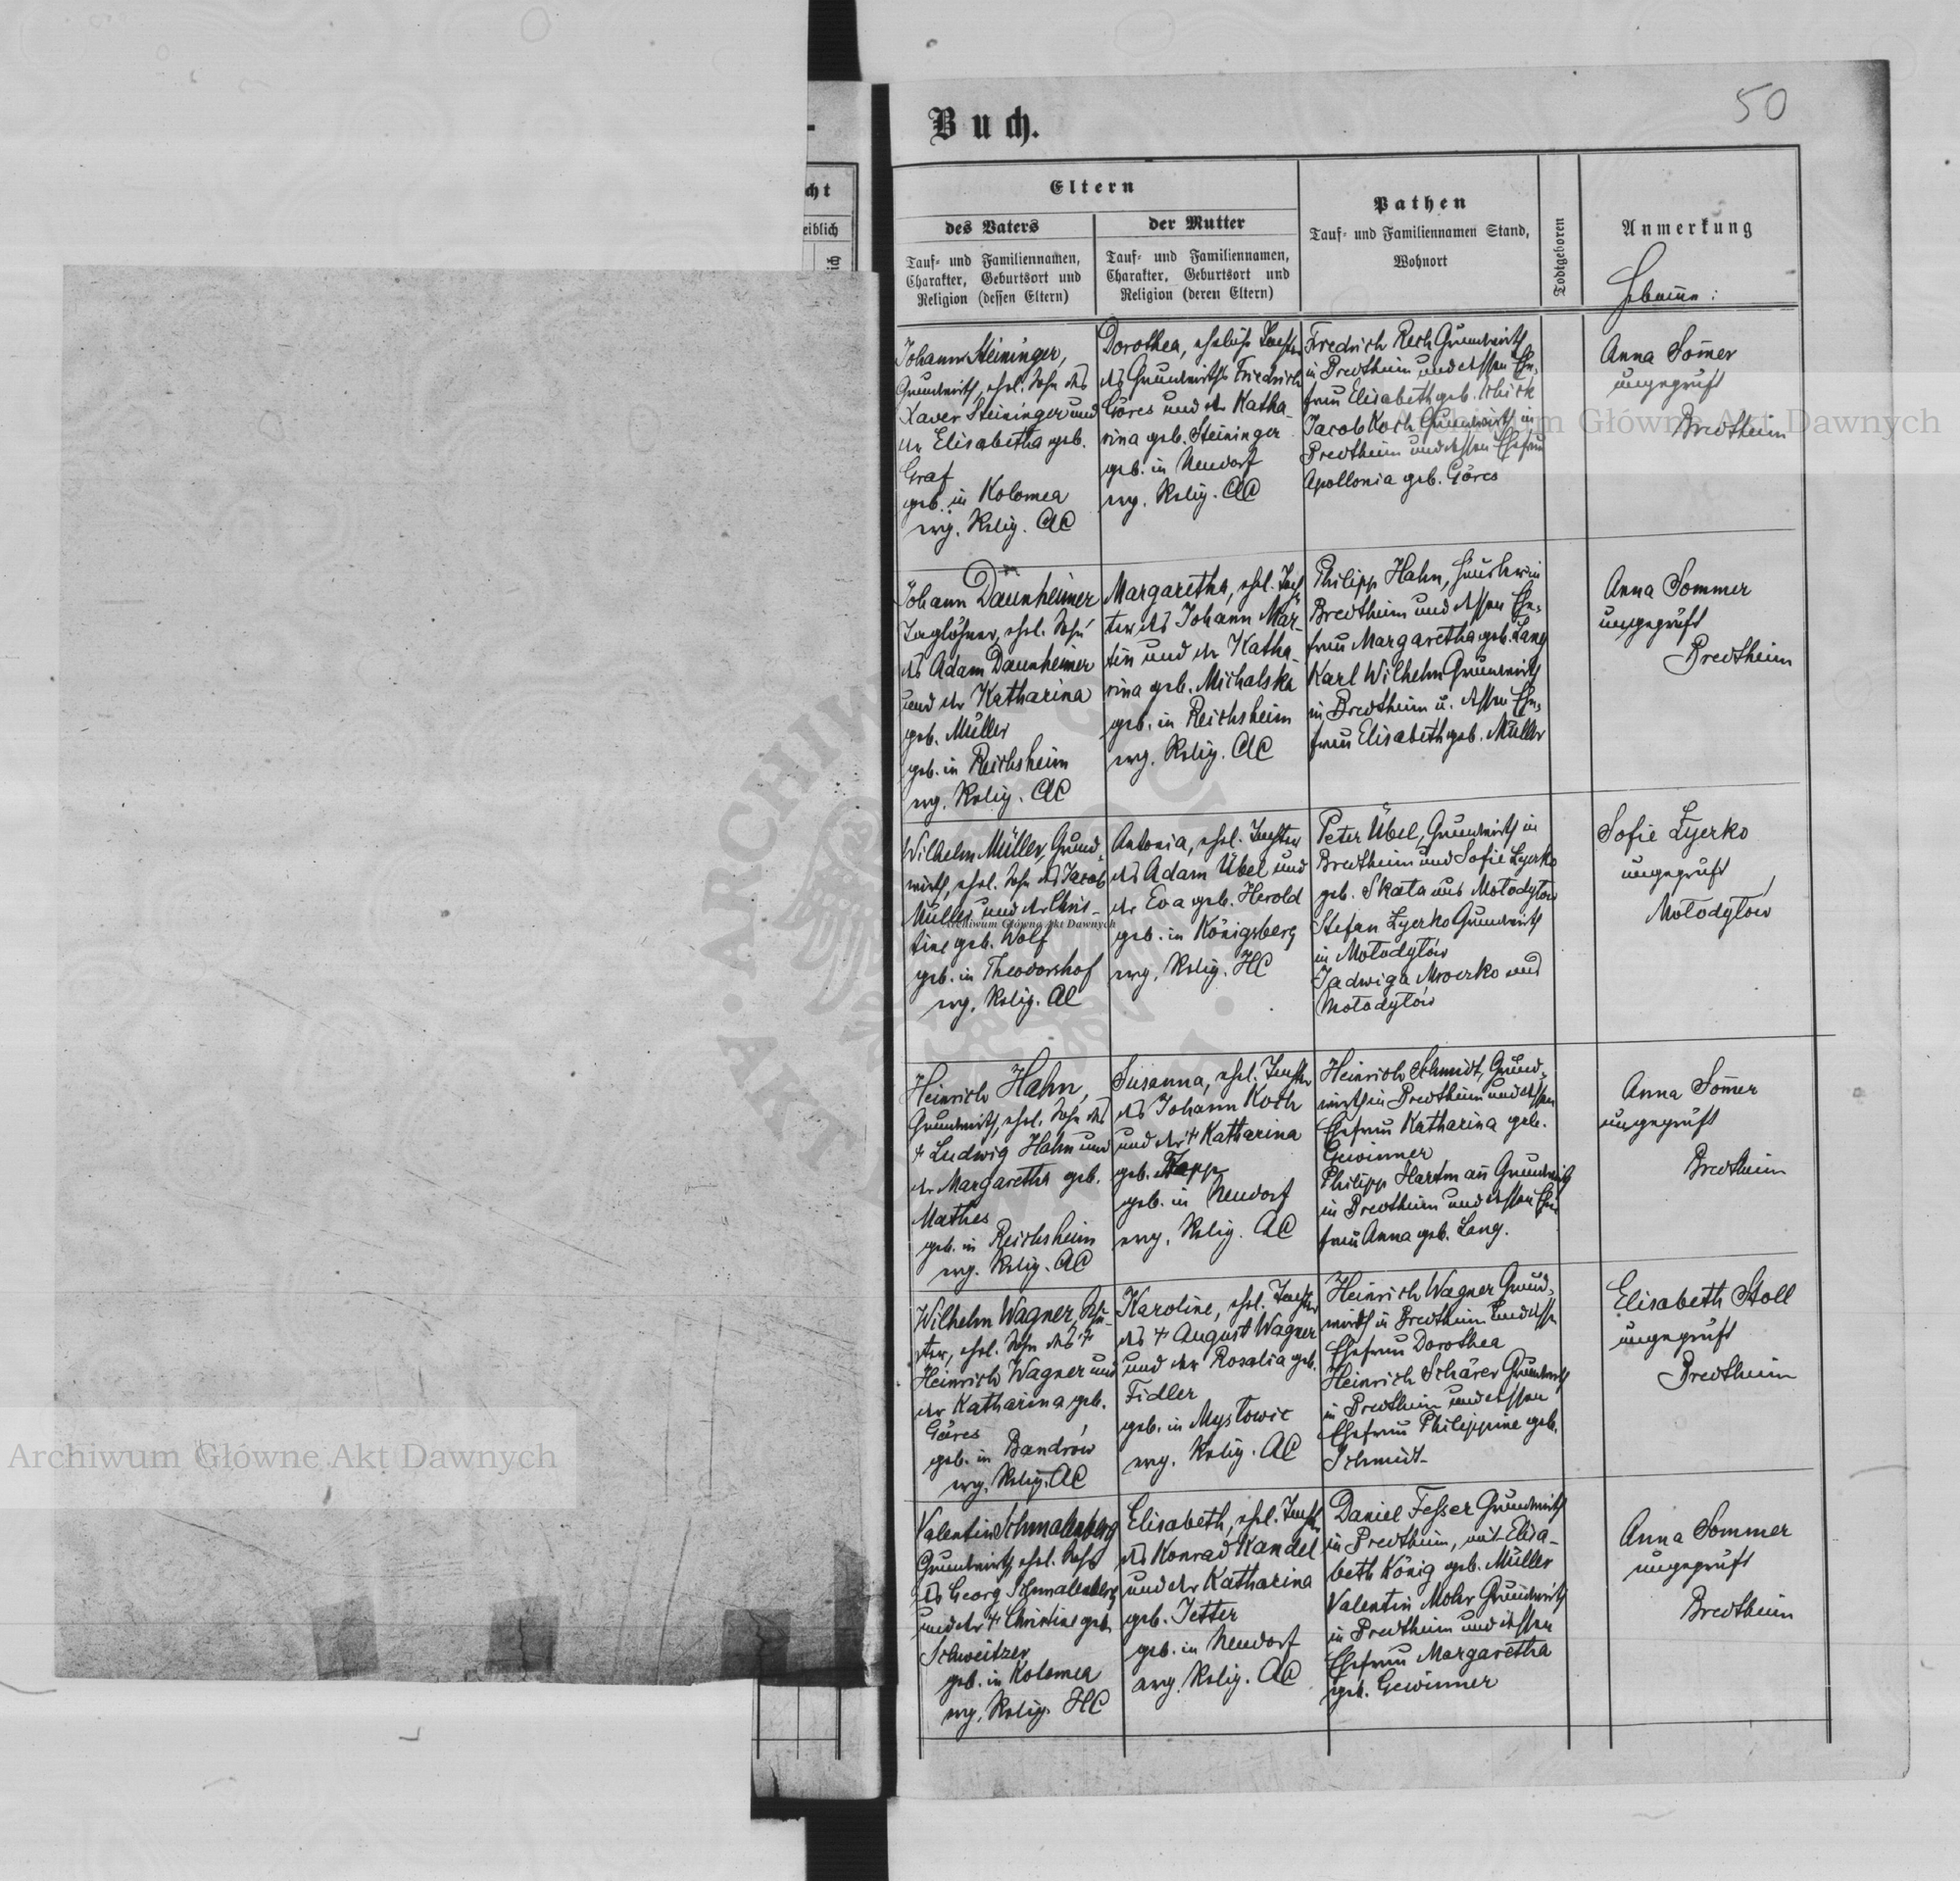 50
Buch.
cht
eiblich
Eltern
des Vaters
Tauf- und Familiennamen,
Charakter, Geburtsort und
Religion (dessen Eltern)
der Mutter
Tauf- und Familiennamen,
Charakter, Geburtsort und
Religion (deren Eltern)
Pathen
Tauf- und Familiennamen Stand,
Wohnort
Todtgeboren
Anmerkung
Hebame:
Johann Steininger,
Grundwirth, ehel. Sohn des
Xaver Steininger und
der Elisabetha geb.
Graf
geb. in Kolomea
evg. Relig. AC
Dorothea, eheliche Tochter
des Grundwirths Friedrich
Göres und der Katha-
rina geb. Steininger
geb. in Neudorf
evg. Relig. AC
Friedrich Rech Grundwirth
in Bredtheim und dessen Ehe-
frau Elisabeth geb. Schick
Jacob Koch Grundwirth in
Bredtheim und dessen Ehefrau
Apollonia geb. Göres
Anna Som̄er
ungeprüft
Bredtheim
Johann Daunheimer
Taglöhner, ehel. Sohn
des Adam Daunheimer
und der Katharina
geb. Müller
geb. in Reichsheim
evg. Relig. AC
Margaretha, ehel. Toch-
ter des Johann Mar-
tin und der Katha-
rina geb. Michalska
geb. in Reichsheim
evg. Relig. AC
Philipp Hahn, in
Bredtheim und dessen Ehe-
frau Margaretha geb. Lang
Karl Wilhelm Grundwirth
in Bredtheim u. dessen Ehe-
frau Elisabeth geb. Müller
Anna Sommer
ungeprüft
Bredtheim
Wilhelm Müller, Grund-
wirth, ehel. Sohn des Jacob
Müller und der Chris-
tine geb. Wolf
geb. in Theodorshof
evg. Relig. AC
Antonia, ehel. Tochter
des Adam Übel und
der Eva geb. Herold
geb. in Königsberg
evg. Relig. HC
Peter Übel, Grundwirth in
Bredtheim und Sofie Łyerko
geb. Skata aus Mołodyłow
Stefan Łyerko Grundwirth
in Mołodyłów
Jadwiga
Mołodyłów
Sofie Łyerko
ungeprüft
Mołodyłów
Heinrich Hahn,
Grundwirth, ehel. Sohn des
† Ludwig Hahn und
der Margaretha geb.
Mathes
geb. in Reichsheim
evg. Relig. AC
Susanna, ehel. Tochter
des Johann Koch
und der † Katharina
geb.
geb. in Neudorf
evg. Relig. AC
Heinrich Schmidt, Grund-
wirth in Bredtheim und dessen
Ehefrau Katharina geb.
Gewinner
Philipp Hartman̄ Grundwirth
in Bredtheim und dessen Ehe-
frau Anna geb. Lang.
Anna Som̄er
ungeprüft
Bredtheim
Wilhelm Wagner,
ehel. Sohn des †
Heinrich Wagner und
der Katharina geb.
Göres
geb. in Bandrów
evg. Relig. AC
Karoline, ehel. Tochter
des † August Wagner
und der Rosalia geb.
Fidler
geb. in Mysłowic
evg. Relig. AC
Heinrich Wagner Grund-
wirth in Bredtheim und dessen
Ehefrau Dorothea
Heinrich Schärer Grundwirth
in Bredtheim und dessen
Ehefrau Philippine geb.
Schmidt
Elisabeth Stoll
ungeprüft
Bredtheim
Valentin Schmalenberg
Grundwirth, ehel. Sohn
des Georg Schmalenberg
und der † Christine geb.
Schweitzer
geb. in Kolomea
evg. Relig. HC
Elisabeth, ehel. Tochter
des Konrad Kandel
und der Katharina
geb. Jetter
geb. in Neudorf
evg. Relig. AC
Daniel Fesser Grundwirth
in Bredtheim, mit Elisa-
beth König geb. Müller
Valentin Mohr Grundwirth
in Bredtheim und dessen
Ehefrau Margaretha
geb. Gewinner
Anna Sommer
ungeprüft
Bredtheim
Archiwum Główne Akt Dawnych
Archiwum Główne Akt Dawnych
Archiwum Główne Akt Dawnych